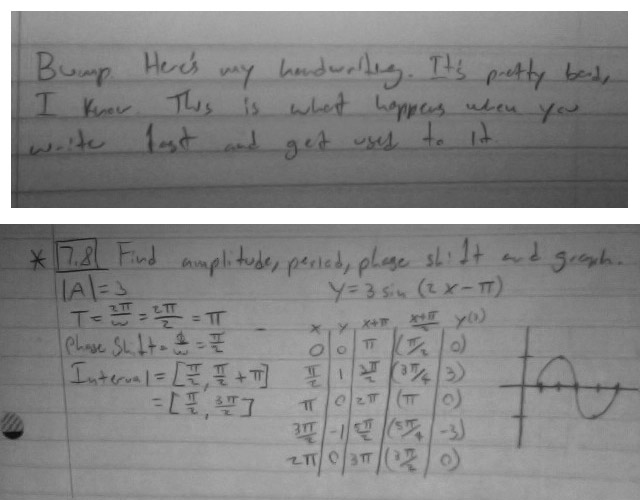 Bump. Here's my handwriting. It's pretty bad,
I know. This is what happens when you
write fast and get used to it.
* 7.8 Find amplitude, period, phase shift and graph.
|A| = 3
y = 3 sin (2x - π)
T = 2π/ω = 2π/2 = π
phase shift = φ/ω = π/2
Interval = [π/2, π/2 + π]
= [π/2, 3π/2]
x | y | x+π | x+π/2 | y(3)
0 | 0 | π | (π/2 | 0)
π/2 | 1 | 3π/2 | (3π/4 | 3)
π | 0 | 2π | (π | 0)
3π/2 | -1 | 5π/2 | (5π/4 | -3)
2π | 0 | 3π | (3π/2 | 0)